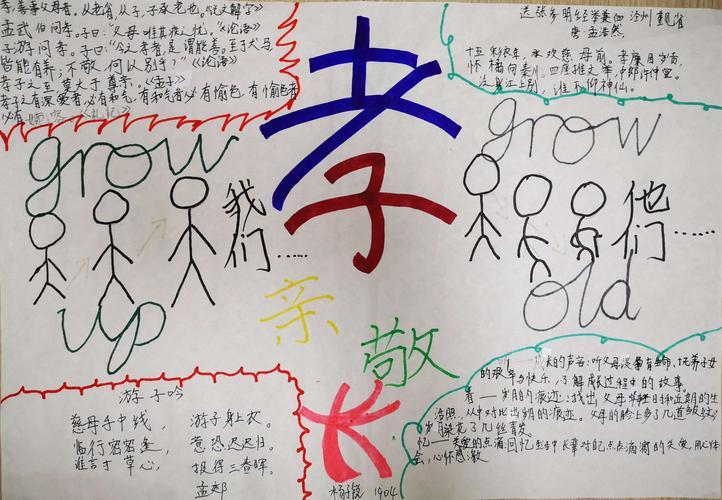 孝,善事父母者。从老省,从子,子承老也。《说文解字》
孟武伯问孝。子曰:“父母唯其疾之忧。”《论语》
子游问孝。子曰:“今之孝者,是谓能养。至于犬马
皆能有养;不敬,何以别乎?”《论语》
孝子之至,莫大于尊亲。《孟子》
孝子之有深爱者,必有和气,有和气者必有愉色,有愉色者
必有
送张参明经举兼向泾州觐省
唐·孟浩然
十五彩衣年,承欢慈母前。孝廉因岁贡,
怀橘向秦川。四座推文举,中郎许仲宣。
泛舟江上别,谁不仰神仙。
孝
grow
我们……
up
grow
他们……
old
亲
敬
长
游子吟
慈母手中线, 游子身上衣。
临行密密逢, 意恐迟迟归。
谁言寸草心, 报得三春晖。
孟郊
——成长的声音:听父母
的艰辛与快乐,了解成长过程中的故事。
——岁月的痕迹:找出父母年轻时和近期的生
活照,从中对比出岁月的痕迹。父母的脸上多了几道皱纹,
岁月染花了几丝青发。
忆——关爱的点滴:回忆生活中长辈对自己点点滴滴的关爱,用心体
会,心怀感激
1904